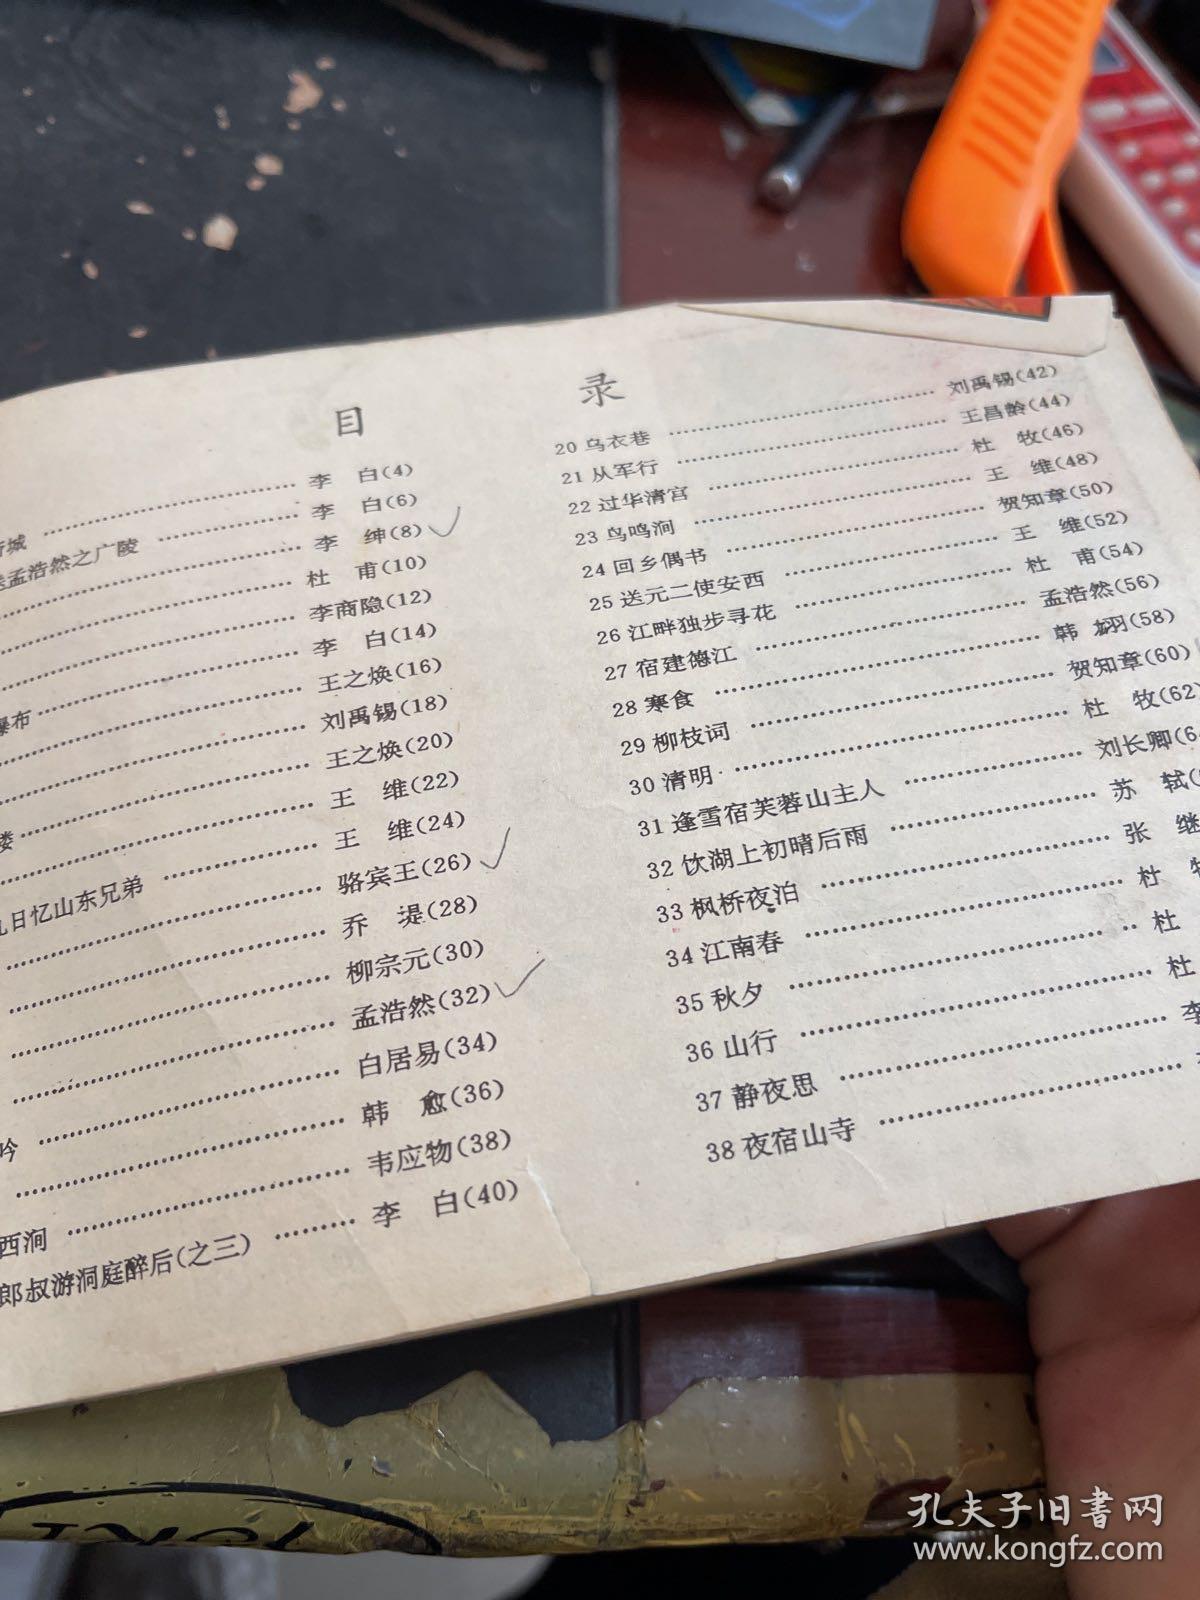 目 录
城 …… 李 白(4)
孟浩然之广陵 …… 李 白(6)
…… 李 绅(8)
…… 杜 甫(10)
…… 李商隐(12)
瀑布 …… 李 白(14)
…… 王之焕(16)
…… 刘禹锡(18)
楼 …… 王之焕(20)
…… 王 维(22)
九日忆山东兄弟 …… 王 维(24)
…… 骆宾王(26)
…… 乔 湜(28)
…… 柳宗元(30)
…… 孟浩然(32)
吟 …… 白居易(34)
…… 韩 愈(36)
西涧 …… 韦应物(38)
郎叔游洞庭醉后(之三) …… 李 白(40)
20 乌衣巷 …… 刘禹锡(42)
21 从军行 …… 王昌龄(44)
22 过华清宫 …… 杜 牧(46)
23 鸟鸣涧 …… 王 维(48)
24 回乡偶书 …… 贺知章(50)
25 送元二使安西 …… 王 维(52)
26 江畔独步寻花 …… 杜 甫(54)
27 宿建德江 …… 孟浩然(56)
28 寒食 …… 韩 翃(58)
29 柳枝词 …… 贺知章(60)
30 清明 …… 杜 牧(62)
31 逢雪宿芙蓉山主人 …… 刘长卿(6
32 饮湖上初晴后雨 …… 苏 轼(
33 枫桥夜泊 …… 张 继
34 江南春 …… 杜 牧
35 秋夕 …… 杜
36 山行 …… 杜
37 静夜思 …… 李
38 夜宿山寺 ……
孔夫子旧书网
www.kongfz.com